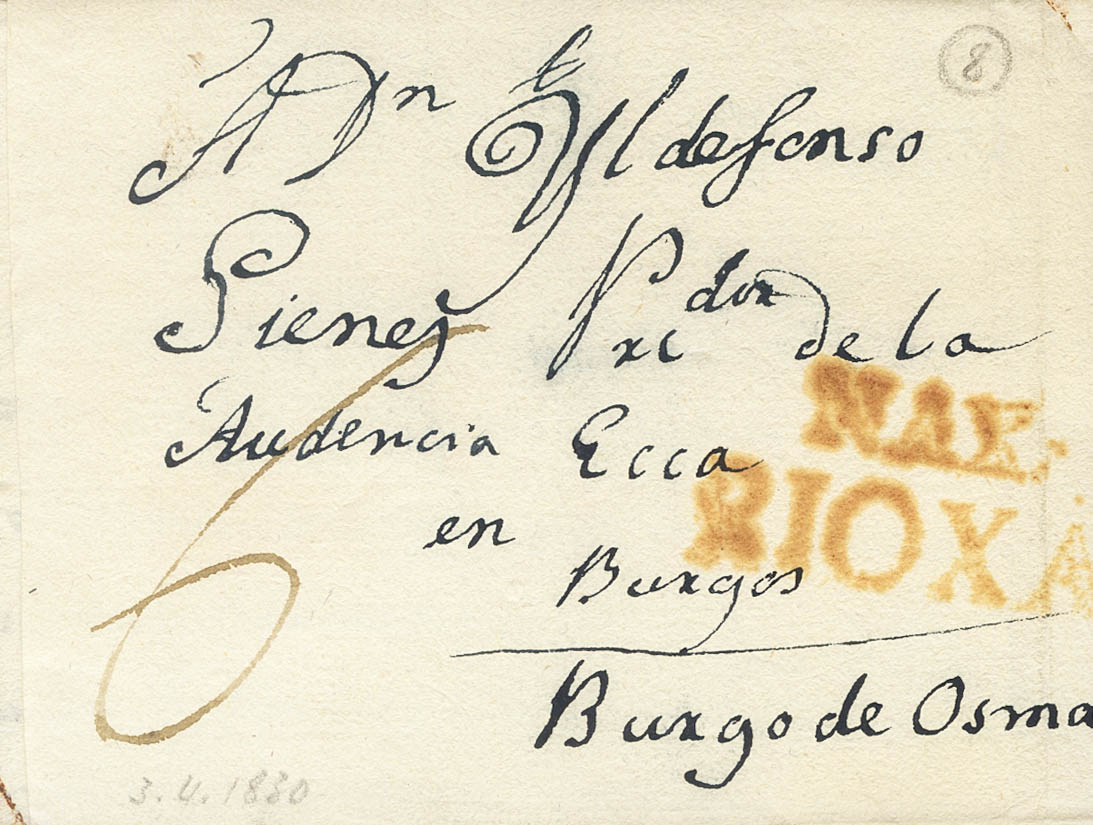 8
A Dn Yldefonso
Pienes Prcdor de la
Audencia Ecca
NAX.
RIOXA
en
Burgos
Burgo de Osma
6
3.4.1830